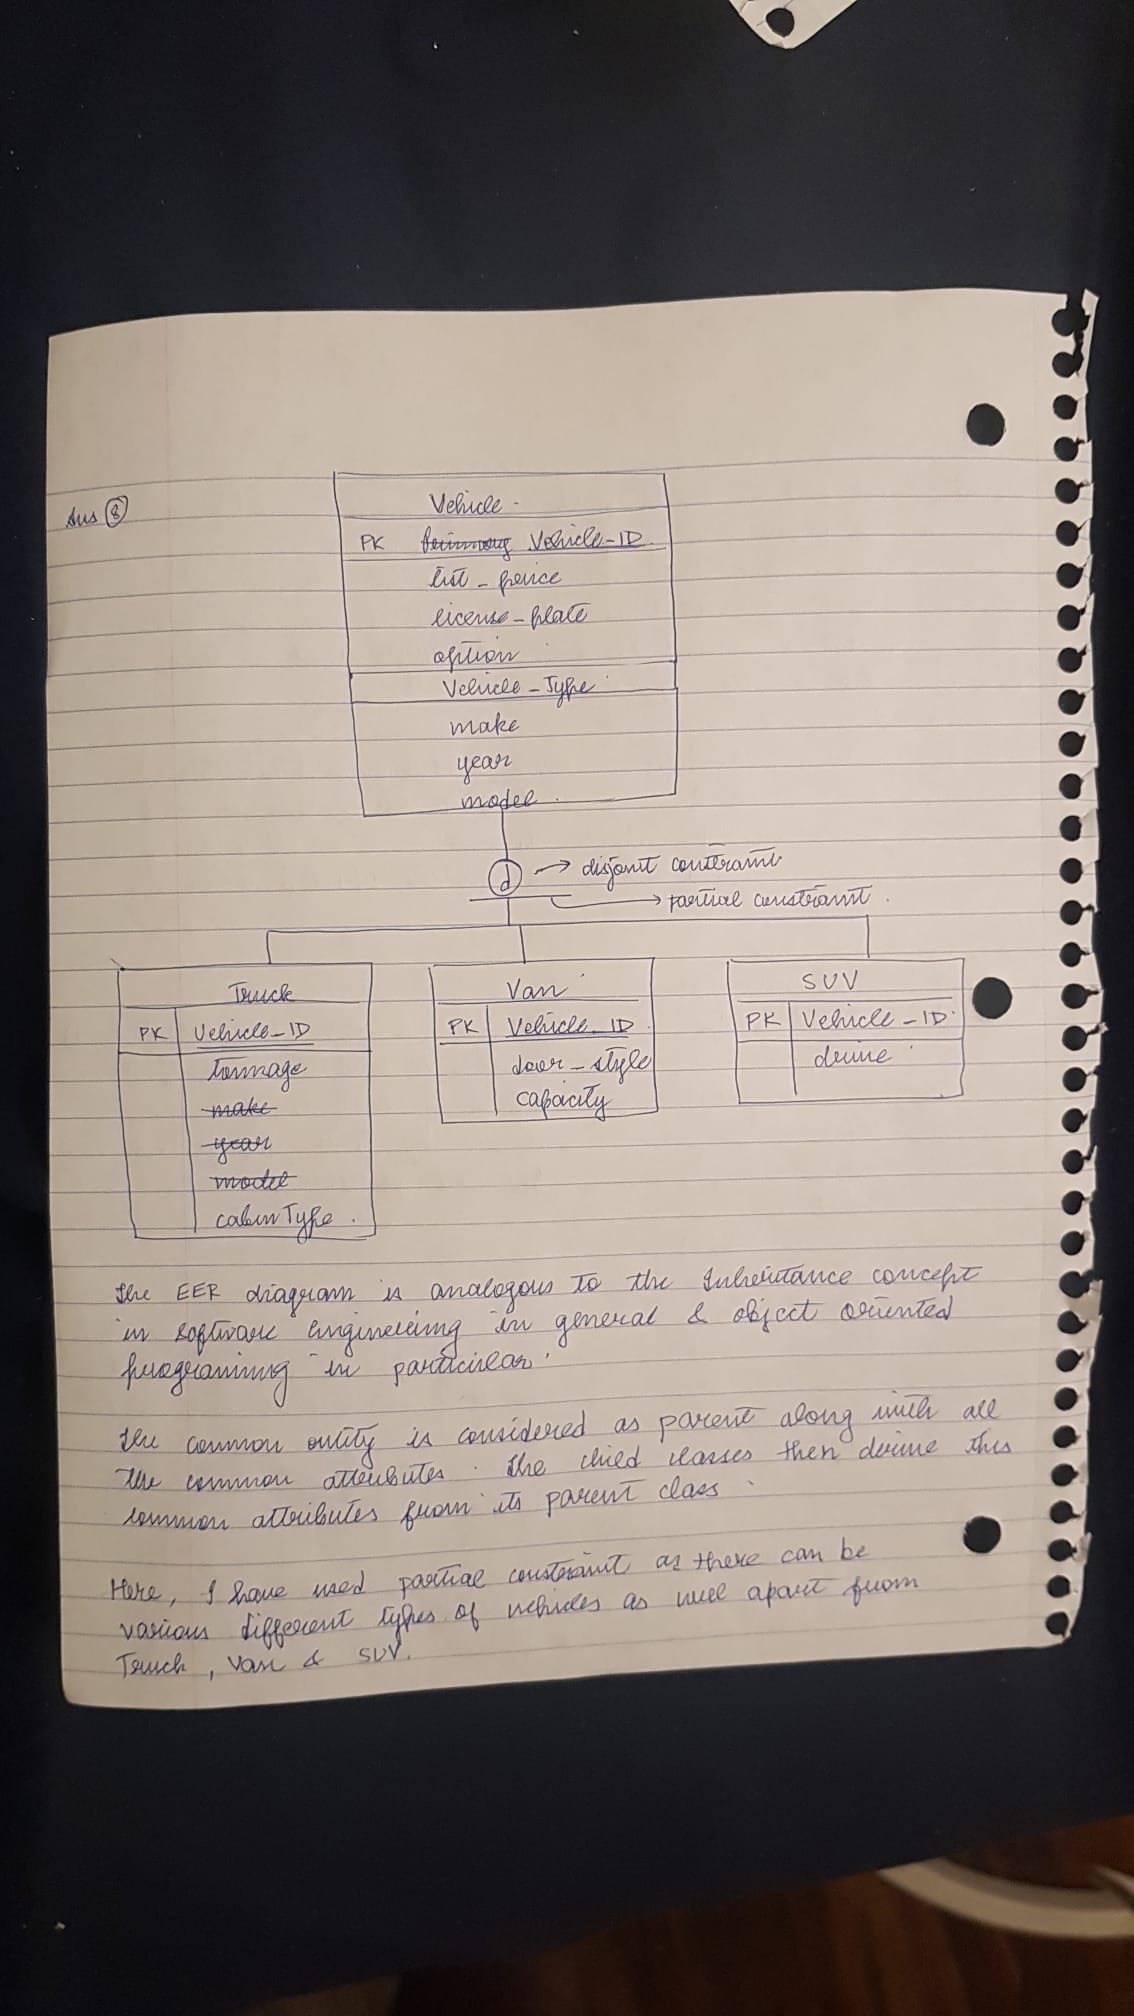 Ans 8
Vehicle
PK Vehicle-ID
list-price
license-plate
option
Vehicle-Type
make
year
model
d → disjoint constraint
→ partial constraint.
Truck
PK Vehicle-ID
tonnage
make
year
model
cabinType.
Van
PK Vehicle-ID
door-style
capacity
SUV
PK Vehicle-ID
the EER diagram is analogous to the Inheritance concept
in software Engineering in general & object oriented
programming in particular.
the common entity is considered as parent along with all
the common attributes. the child classes then derive this
common attributes from its parent class.
Here, I have used partial constraint as there can be
various different types of vehicles as well apart from
Truck, Van & SUV.